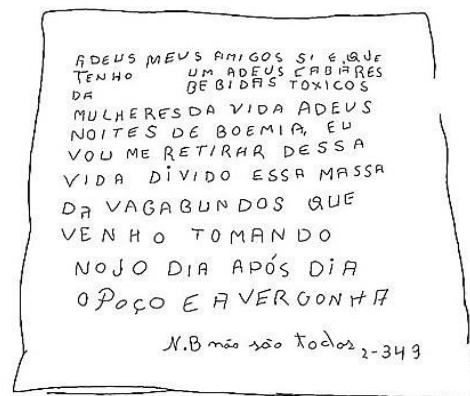 ADEUS MEUS AMIGOS SI E, QUE
TENHO UM ADEUS CABARES
DA BEBIDAS TOXICOS
MULHERES DA VIDA ADEUS
NOITES DE BOEMIA, EU
VOU ME RETIRAR DESSA
VIDA DIVIDO ESSA MASSA
DA VAGABUNDOS QUE
VENHO TOMANDO
NOJO DIA APÓS DIA
O POÇO E A VERGONHA
N.B não são todos 2-349